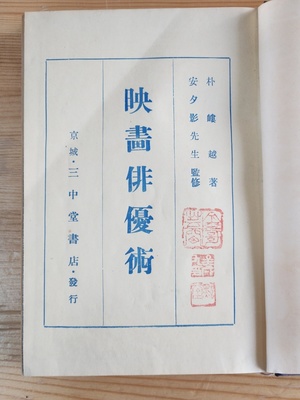 朴嶁越著
安夕影先生監修
映畵俳優術
京城・三中堂書店・發行